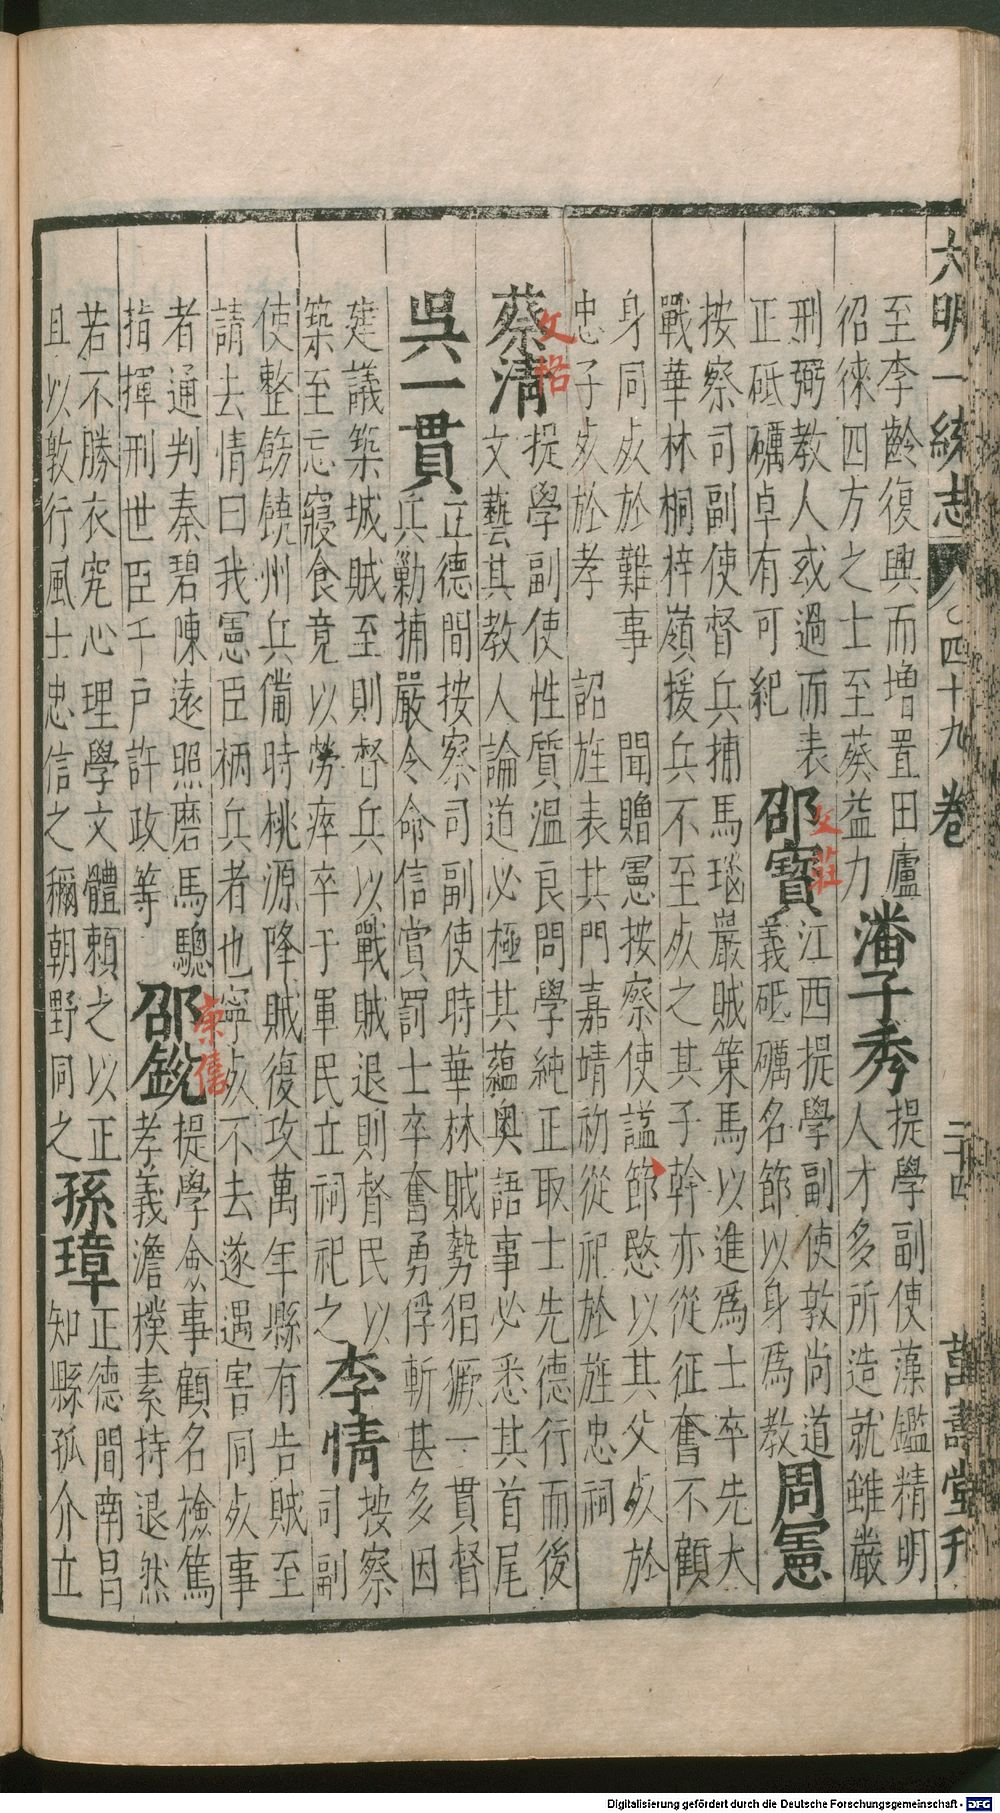 大明一統志 四十九卷 二十四 萬壽堂刊
至李齡復興而增置田廬
徂徠四方之士至葵益力
潘子秀
提學副使藻鑑精明
人才多所造就雖嚴
刑弼教人或過而表
正砥礪卓有可紀
邵寶
文莊
江西提學副使敦尚道
義砥礪名節以身爲教
周憲
按察司副使督兵捕馬瑙巖賊策馬以進爲士卒先大
戰華林桐梓嶺援兵不至死之其子幹亦從征奮不顧
身同死於難事 聞贈憲按察使諡節愍以其父死於
忠子死於孝 詔旌表其門嘉靖初從祀於旌忠祠
蔡清
文恪
提學副使性質温良問學純正取士先德行而後
文藝其教人論道必極其蘊奧語事必悉其首尾
吳一貫
正德間按察司副使時華林賊勢猖獗一貫督
兵勦捕嚴令命信賞罰士卒奮勇俘斬甚多因
建議築城賊至則督兵以戰賊退則督民以
築至忘寢食竟以勞瘁卒于軍民立祠祀之
李情
按察
司副
使整飭饒州兵備時桃源降賊復攻萬年縣有告賊至
請去情曰我憲臣柄兵者也寧死不去遂遇害同死事
者通判秦碧陳遠照磨馬驄
指揮刑世臣千戶許政等
邵銳
康僖
提學僉事顧名檢篤
孝義澹樸素持退然
若不勝衣究心理學文體賴之以正
且以敦行風士忠信之稱朝野同之
孫璋
正德間南昌
知縣孤介立
Digitalisierung gefördert durch die Deutsche Forschungsgemeinschaft - DFG